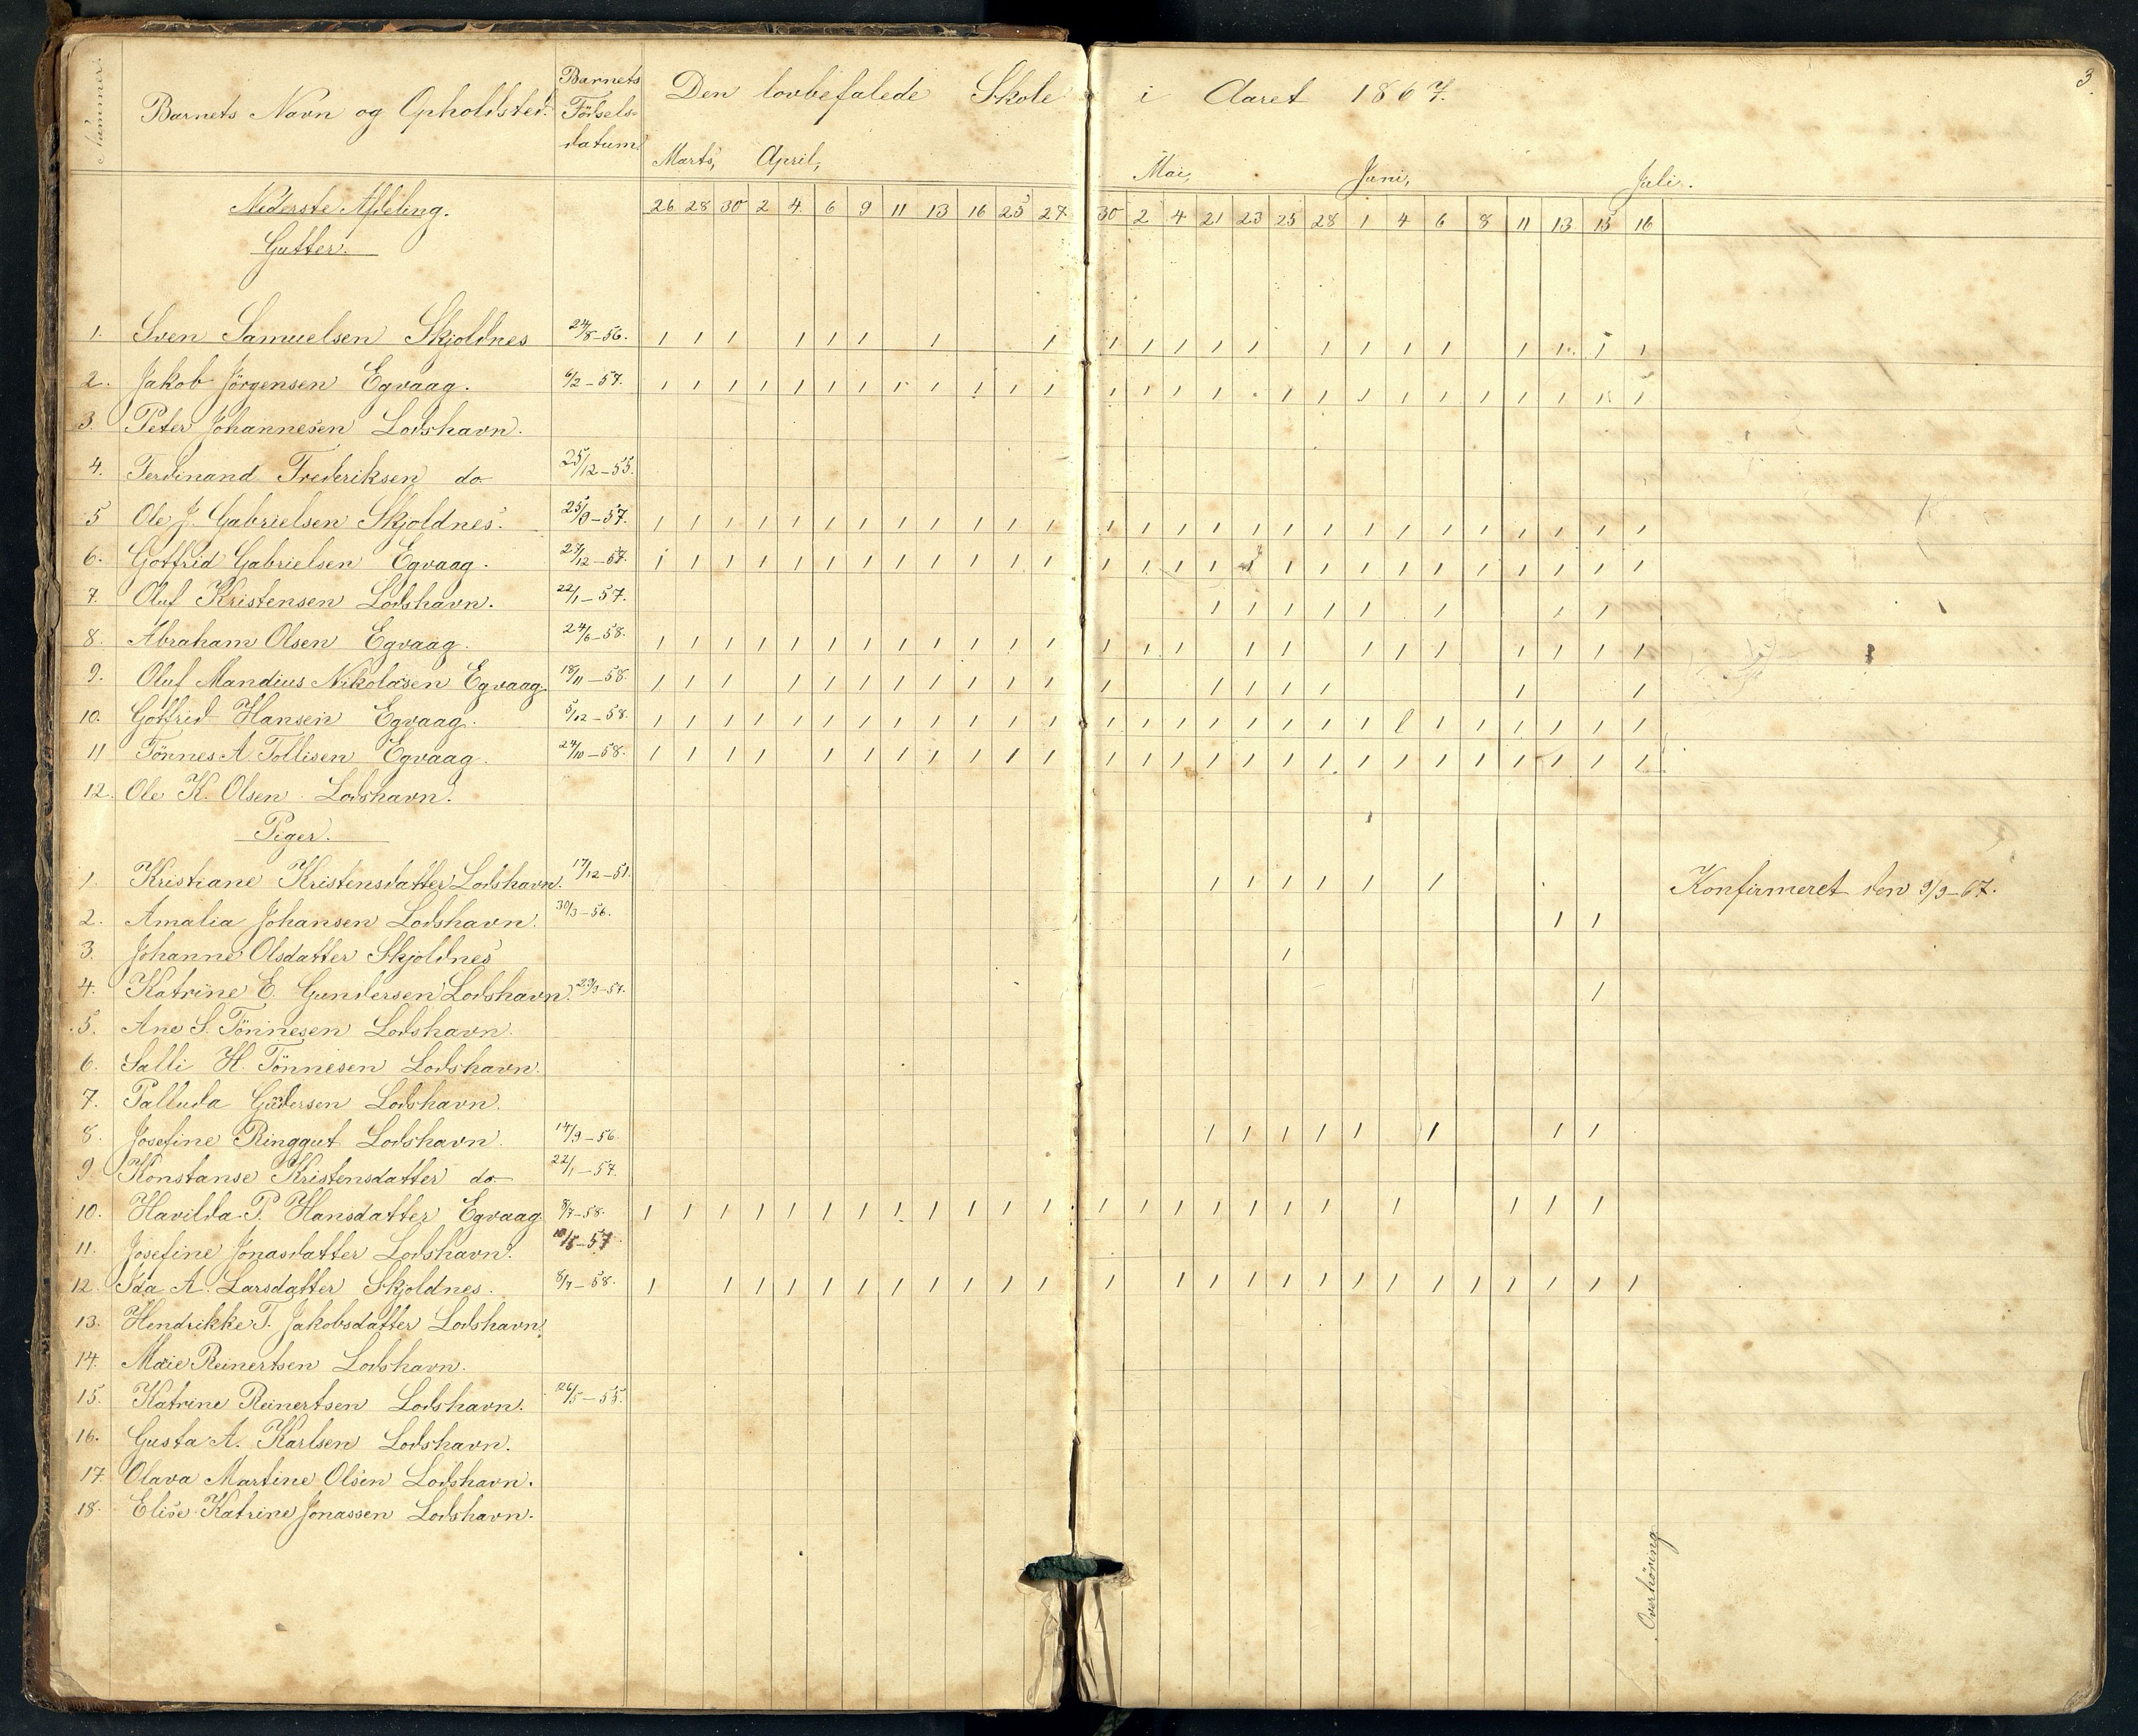 3.
Nummer.
Barnets Navn og Opholdsted.
Barnets Födsels-datum
Den lovbefalede Skole i Aaret 1867.
Marts, April, Mai, Juni, Juli.
Nederste Afdeling.
26 28 30 2 4 6 9 11 13 16 25 27 30 2 4 21 23 25 28 1 4 6 8 11 13 15 16
Gutter.
1. Sven Samuelsen Skjoldnes 24/8-56. 1 1 1 1 1 1 1 1 1 1 1 1 1 1 1 1 1 1 1 1 1 1
2. Jakob Jörgensen Egvaag. 6/2-57. 1 1 1 1 1 1 1 1 1 1 1 1 1 1 1 1 1 1 1 1 1 1 1 1 1 1
3. Peter Johannesen Lodshavn.
4. Ferdinand Frederiksen do 25/12-55.
5 Ole J. Gabrielsen Skjoldnes. 25/9-57. 1 1 1 1 1 1 1 1 1 1 1 1 1 1 1 1 1 1 1 1 1 1 1 1 1 1 1
6. Gotfrid Gabrielsen Egvaag. 27/12-57. 1 1 1 1 1 1 1 1 1 1 1 1 1 1 1 1 1 1 1 1 1 1 1 1 1 1 1
7. Oluf Kristensen Lodshavn. 22/1-57. 1 1 1 1 1 1 1 1
8. Abraham Olsen Egvaag. 24/6-58. 1 1 1 1 1 1 1 1 1 1 1 1 1 1 1 1 1 1 1 1 1 1 1 1
9. Oluf Mandius Nikolaisen Egvaag. 18/11-58. 1 1 1 1 1 1 1 1 1 1 1 1 1 1 1 1 1 1
10. Gotfrid Hansen Egvaag. 5/12-58. 1 1 1 1 1 1 1 1 1 1 1 1 1 1 1 1 1 1 1 1 1 1 1 1 1 1 1
11 Tönnes A. Tollisen Egvaag. 24/10-58. 1 1 1 1 1 1 1 1 1 1 1 1 1 1 1 1 1 1 1 1 1 1 1 1 1 1
12. Ole K. Olsen Lodshavn.
Piger.
1. Kristiane Kristensdatter Lodshavn. 17/12-51. 1 1 1 1 1 1 Konfirmeret den 9/9-67.
2. Amalia Johansen Lodshavn. 30/3-56. 1 1
3. Johanne Olsdatter Skjoldnes 1
4. Katrine E. Gundersen Lodshavn. 1
5. Ane S. Tönnesen Lodshavn.
6. Salli H. Tönnesen Lodshavn.
7. Palluda Lodshavn.
8. Josefine Ringgut Lodshavn. 14/9-56. 1 1 1 1 1 1 1 1
9. Konstanse Kristensdatter do 22/1-57.
10. Havilda P. Hansdatter Egvaag 8/7-58. 1 1 1 1 1 1 1 1 1 1 1 1 1 1 1 1 1 1 1 1 1 1 1
11. Josefine Jonasdatter Lodshavn.
12. Ida A. Larsdatter Skjoldnes. 8/7-58. 1 1 1 1 1 1 1 1 1 1 1 1 1 1 1 1 1 1 1 1 1 1 1 1 1
13. Hendrikke T. Jakobsdatter Lodshavn.
14. Marie Reinertsen Lodshavn.
15. Katrine Reinertsen Lodshavn. 26/5-55.
16. Gusta A. Karlsen Lodshavn.
17. Olava Martine Olsen Lodshavn.
18. Elise Katrine Jonassen Lodshavn.
Overhöring